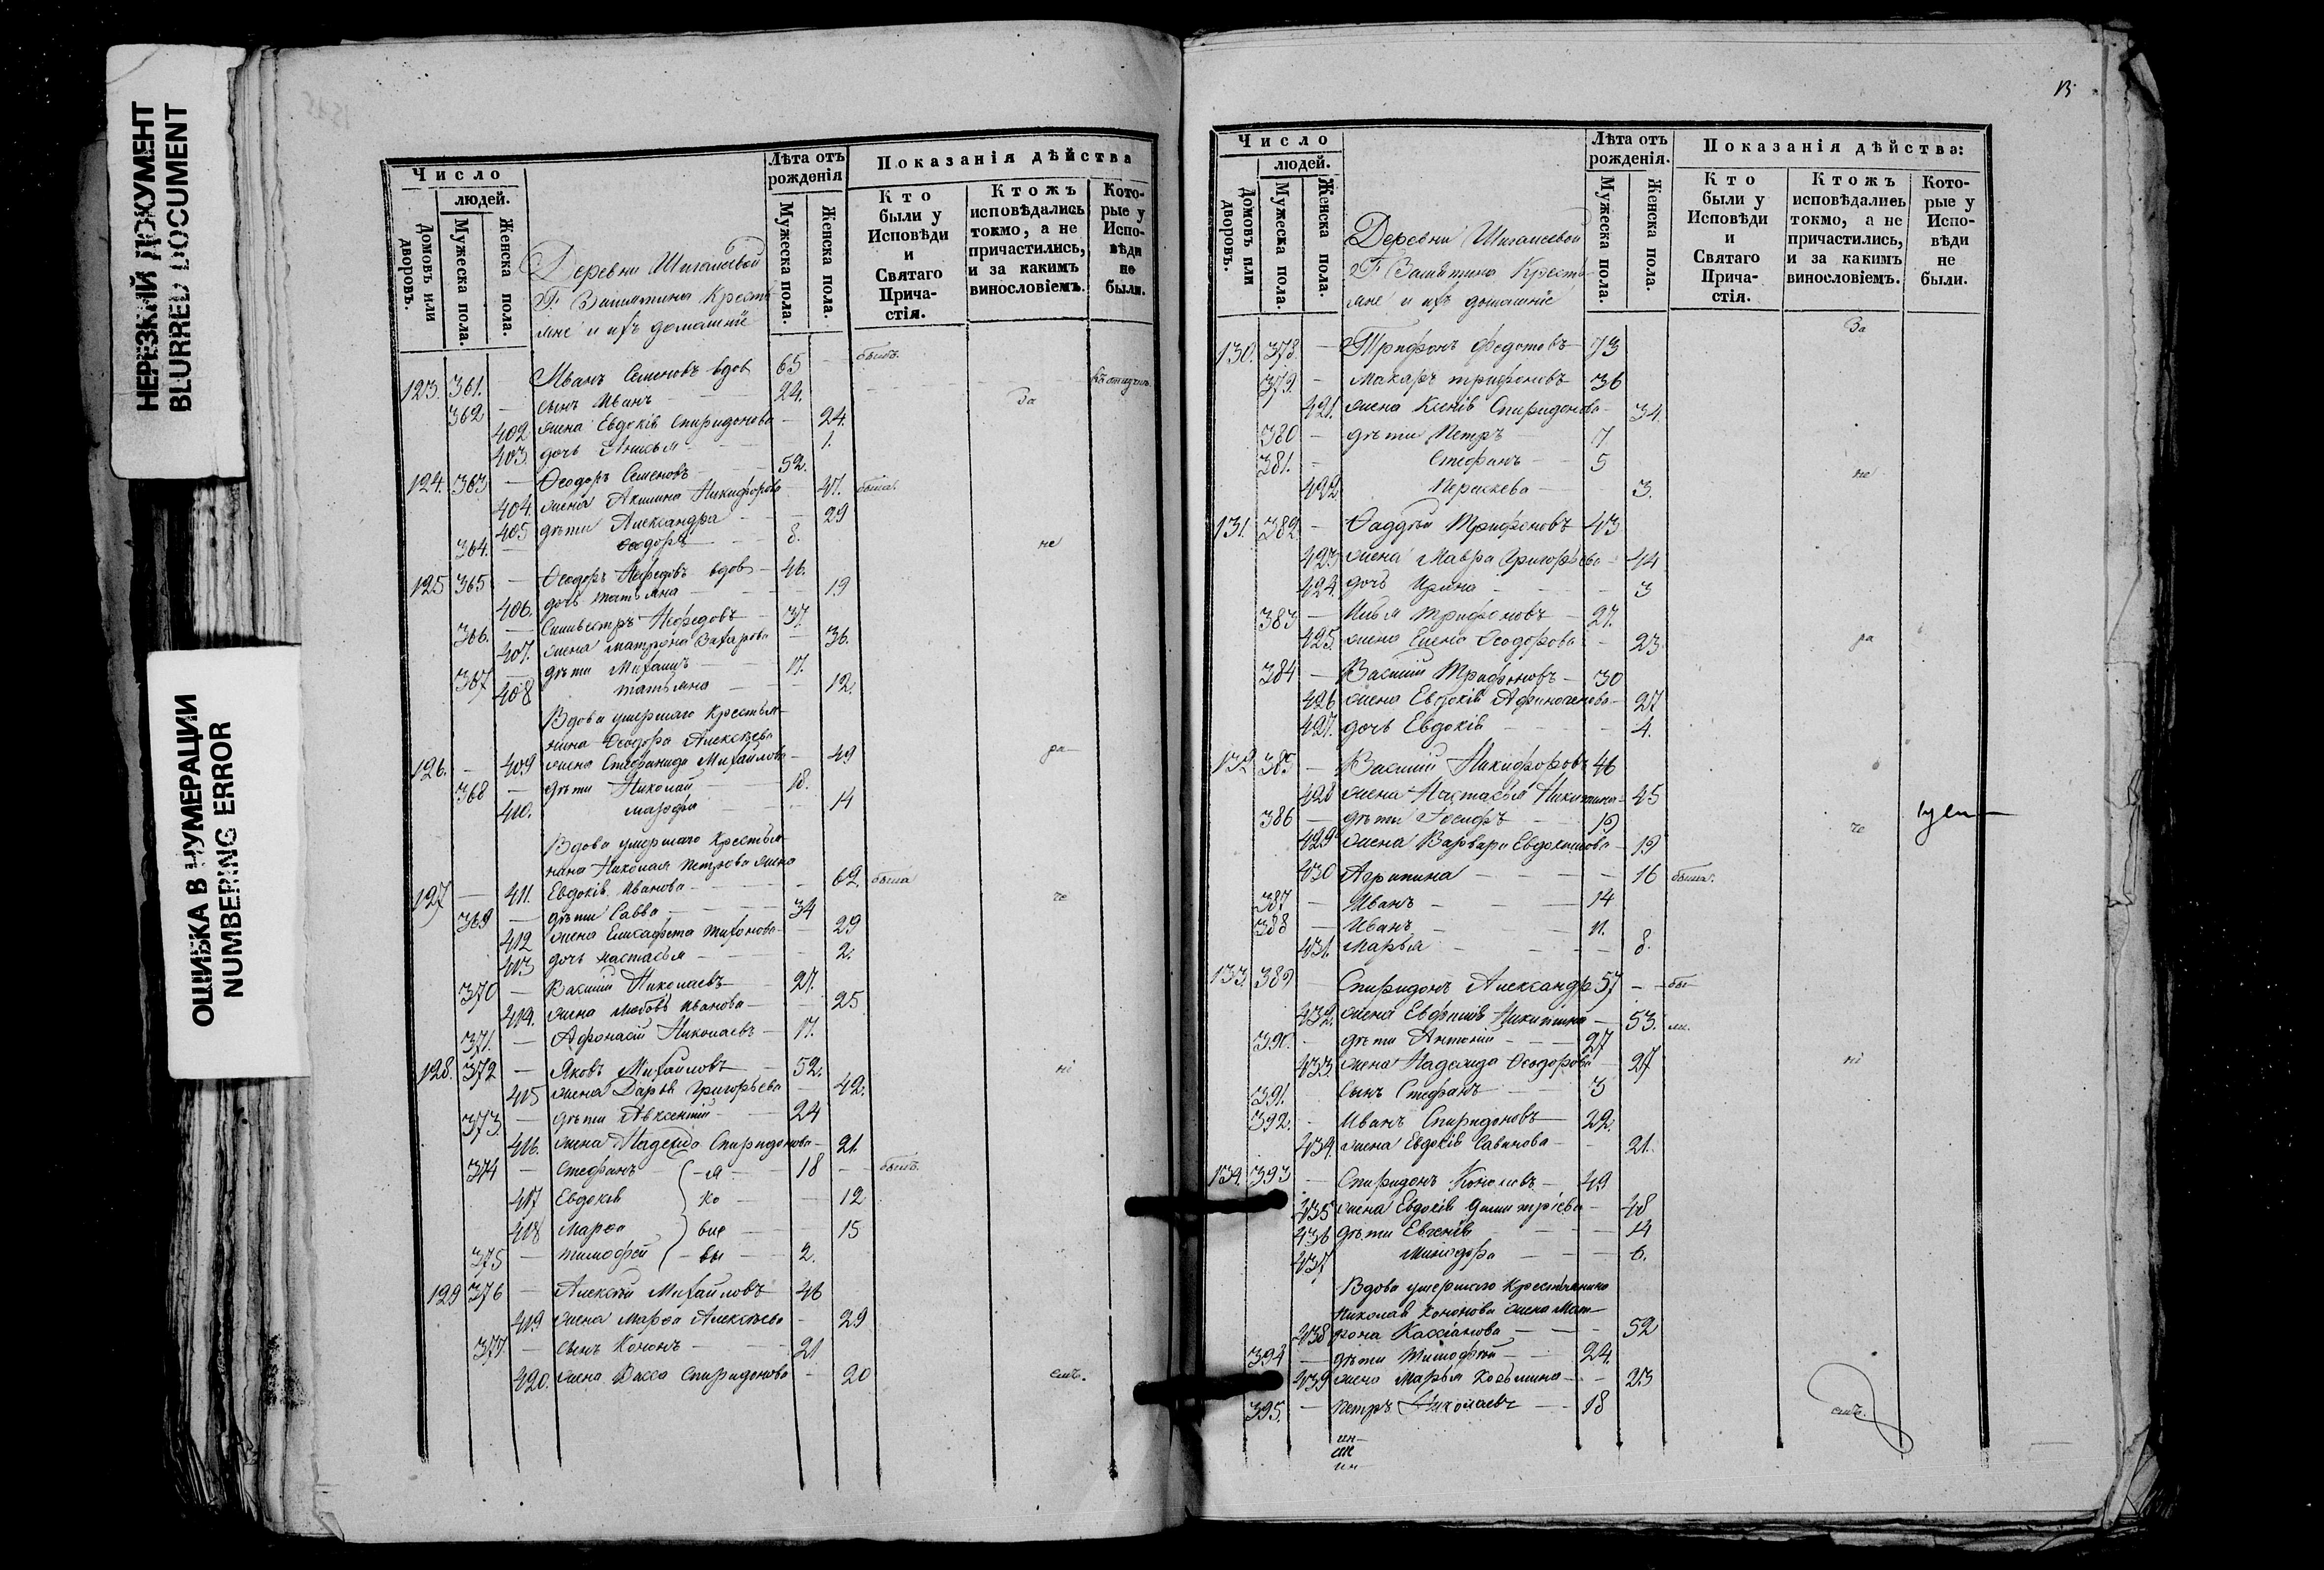 НЕРЕЗКИЙ ДОКУМЕНТ
BLURRED DOCUMENT
ОШИБКА В НУМЕРАЦИИ
NUMBERING ERROR
Число
людей.
Домовъ или дворовъ.
Мужеска пола.
Женска пола.
Деревни
Г. Крестья
яне и ихъ домашніе
Лѣта отъ рожденія
Мужеска пола.
Женска пола.
Показанія дѣйства
Кто были у Исповѣди и Святаго Прича-стія.
Ктожъ исповѣдались токмо, а не причастились, и за какимъ винословіемъ.
Кото-рые у Испо-вѣди не были.
123. 361. Иванъ Семеновъ вдов 65 былъ
362 — сынъ Иванъ — 24.
402 жена Евдокія Спиридонова — 24. За
403. дочь Анисья 1.
124. 363 — Ѳеодоръ Семеновъ — 52.
404. жена Акилина Никифорова 47. была
405 дѣти Александра — 29
364. — Ѳеодоръ — 8. не
125 365 — Ѳеодоръ Нефедовъ вдов — 46.
406. дочь татьяна — 19
366. — Силивестръ Нефедовъ — 37.
407. жена матрона Захарова — 36.
367 — дѣти Михаилъ — 17.
408 татьяна — 12.
Вдова умершаго Крестья-
нина Ѳеодора Алексѣева
126. — 409 жена Степанида Михайлова — 49 ра
368 — дѣти Николай — 18.
410. марфа 14
Вдова умершаго Крестья-
нина Николая петрова жена
127 — 411. Евдокія Иванова — 62. была
369 — дѣти Савва — 34 че
412 жена Елисавета тихонова — 29
413 дочь настасья — 2.
370 — Василій Николаевъ 27.
414. жена любовь иванова — 25
371. — Афонасій Николаевъ — 17.
128. 372 — Яковъ Михайловъ — 52. ні
415 жена Дарья Григорьева 42.
373. — дѣти Авксентій — 24
416. жена Надежда Спиридонова — 21.
374 — Стефанъ — я — 18 — былъ
417 Евдокія ко — 12
418 Марѳа вле — 15
375 — тимофей — вы 2.
129 376 — Алексѣй Михайловъ 46
419 жена марѳа Алексѣева — 29
377. — сынъ Кононъ — 21
420. жена Васса Спиридонова — 20 емъ.
Число
людей.
Домовъ или дворовъ.
Мужеска пола.
Женска пола.
Деревни
Г. Крестья
яне и ихъ домашніе
Лѣта отъ рожденія.
Мужеска пола.
Женска пола.
Показанія дѣйства:
Кто были у Исповѣди и Святаго Прича-стія.
Ктожъ исповѣдались токмо, а не причастились, и за какимъ винословіемъ.
Кото-рые у Испо-вѣди не были.
За
130. 378. — Трифонъ Федотовъ — 73
379. — макаръ трифоновъ 36
421. жена Ксенія Спиридонова — 34.
380 — дѣти Петръ 7
381. — Стефанъ — 5
422 Параскева — 3. не
131. 382. — Ѳаддѣй Трифоновъ 43
423 жена Мавра Григорьева — 44
424. дочь Ирина — 3
383 — Илья трифоновъ — 27.
425. жена Елена Ѳеодорова — 23 ра
384 — Василій Трифоновъ — 30
426 жена Евдокія Афиногенова — 27
427. дочь Евдокія — 4.
132 385 — Василій Никифоровъ 46
428 жена Настасья Никитина — 45
386 — дѣти Іосифъ — 19
429 жена Варвара Евдокимова — 19 че
430 Агрипина — 16 была.
387 — Иванъ — 14
388 — Иванъ — 11.
431. Марья — 8.
133. 389 Спиридонъ Александр 57 — бы
432. жена Евфимія Никитина — 53. ли.
390. — дѣти Антоній — 27
433. жена Надежда Ѳеодорова 27 ні
391. — сынъ Стефанъ — 3
392. — Иванъ Спиридоновъ 22.
434. жена Евдокія Савинова — 21.
134. 393 — Спиридонъ Кононовъ — 49
435 жена Евдокія Димитріева — 48
436 дѣти Евгенія — 14
437 Минодора — 6.
Вдова умершаго Крестьянина
Николая Кононова жена Мат-
438 рона Кассіанова — 52
394 — дѣти Тимофѣй — 24.
439 жена Марья Козьмина — 23
395. — петръ Николаевъ — 18 емъ.